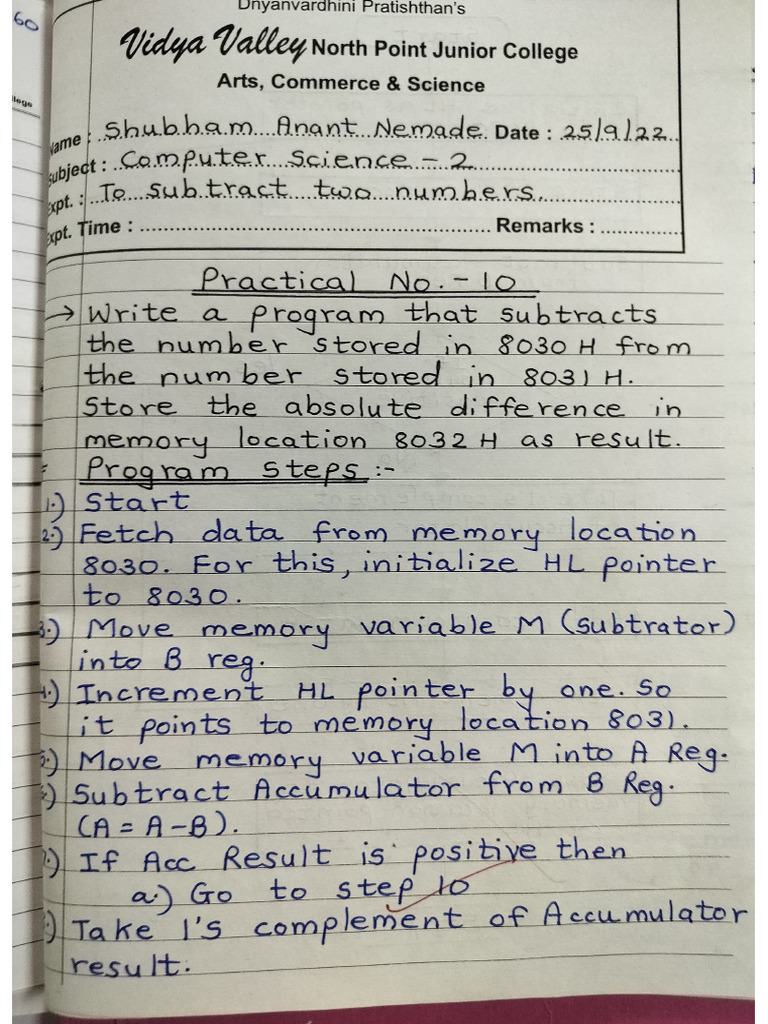 60
Dnyanvardhini Pratishthan's
Vidya Valley North Point Junior College
Arts, Commerce & Science
Name : Shubham Anant Nemade Date : 25/9/22
Subject : Computer Science - 2
Expt. : To subtract two numbers.
Expt. Time : Remarks :
Practical No. - 10
→ Write a program that subtracts
the number stored in 8030 H from
the number stored in 8031 H.
Store the absolute difference in
memory location 8032 H as result.
Program Steps :-
1.) Start
2.) Fetch data from memory location
8030. For this, initialize HL pointer
to 8030.
3.) Move memory variable M (subtrator)
into B reg.
4.) Increment HL pointer by one. So
it points to memory location 8031.
5.) Move memory variable M into A Reg.
6.) Subtract Accumulator from B Reg.
(A = A-B).
7.) If Acc Result is positive then
a.) Go to step 10
8.) Take 1's complement of Accumulator
result.